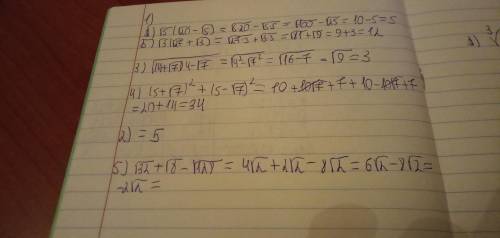 1)
а) √5(√20 - √5) = √5·20 - √5·5 = √100 - √25 = 10 - 5 = 5
б) √3(√27 + √3) = √27·3 + √3·3 = √81 + √9 = 9 + 3 = 12
3) √4+√7 · √4-√7 = √4²-√7² = √16-7 = √9 = 3
4) (5+√7)² + (5-√7)² = 10 + 10√7 + 7 + 10 - 10√7 + 7
= 20 + 14 = 34
2) = 5
5) √32 + √8 - √128 = 4√2 + 2√2 - 8√2 = 6√2 - 8√2 =
-2√2 =